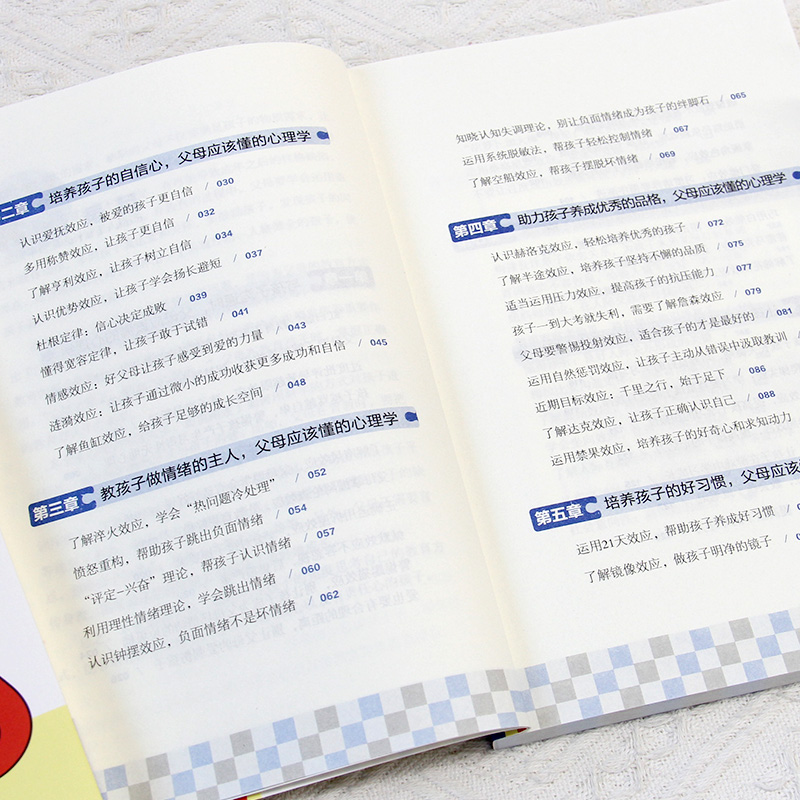 二章 培养孩子的自信心，父母应该懂的心理学
认识爱抚效应，被爱的孩子更自信 / 030
多用称赞效应，让孩子更自信 / 032
了解亨利效应，让孩子树立自信 / 034
认识优势效应，让孩子学会扬长避短 / 037
杜根定律：信心决定成败 / 039
懂得宽容定律，让孩子敢于试错 / 041
情感效应：好父母让孩子感受到爱的力量 / 043
涟漪效应：让孩子通过微小的成功收获更多成功和自信 / 045
了解鱼缸效应，给孩子足够的成长空间 / 048
第三章 教孩子做情绪的主人，父母应该懂的心理学
了解淬火效应，学会“热问题冷处理” / 052
愤怒重构，帮助孩子跳出负面情绪 / 054
“评定-兴奋”理论，帮孩子认识情绪 / 057
利用理性情绪理论，学会跳出情绪 / 060
认识钟摆效应，负面情绪不是坏情绪 / 062
知晓认知失调理论，别让负面情绪成为孩子的绊脚石 / 065
运用系统脱敏法，帮孩子轻松控制情绪 / 067
了解空船效应，帮孩子摆脱坏情绪 / 069
第四章 助力孩子养成优秀的品格，父母应该懂的心理学
认识赫洛克效应，轻松培养优秀的孩子 / 072
了解半途效应，培养孩子坚持不懈的品质 / 075
适当运用压力效应，提高孩子的抗压能力 / 077
孩子一到大考就失利，需要了解詹森效应 / 079
父母要警惕投射效应，适合孩子的才是最好的 / 081
运用自然惩罚效应，让孩子主动从错误中汲取教训
近期目标效应：千里之行，始于足下 / 086
了解达克效应，让孩子正确认识自己 / 088
运用禁果效应，培养孩子的好奇心和求知动力
第五章 培养孩子的好习惯，父母应该
运用21天效应，帮助孩子养成好习惯 /
了解镜像效应，做孩子明净的镜子 /